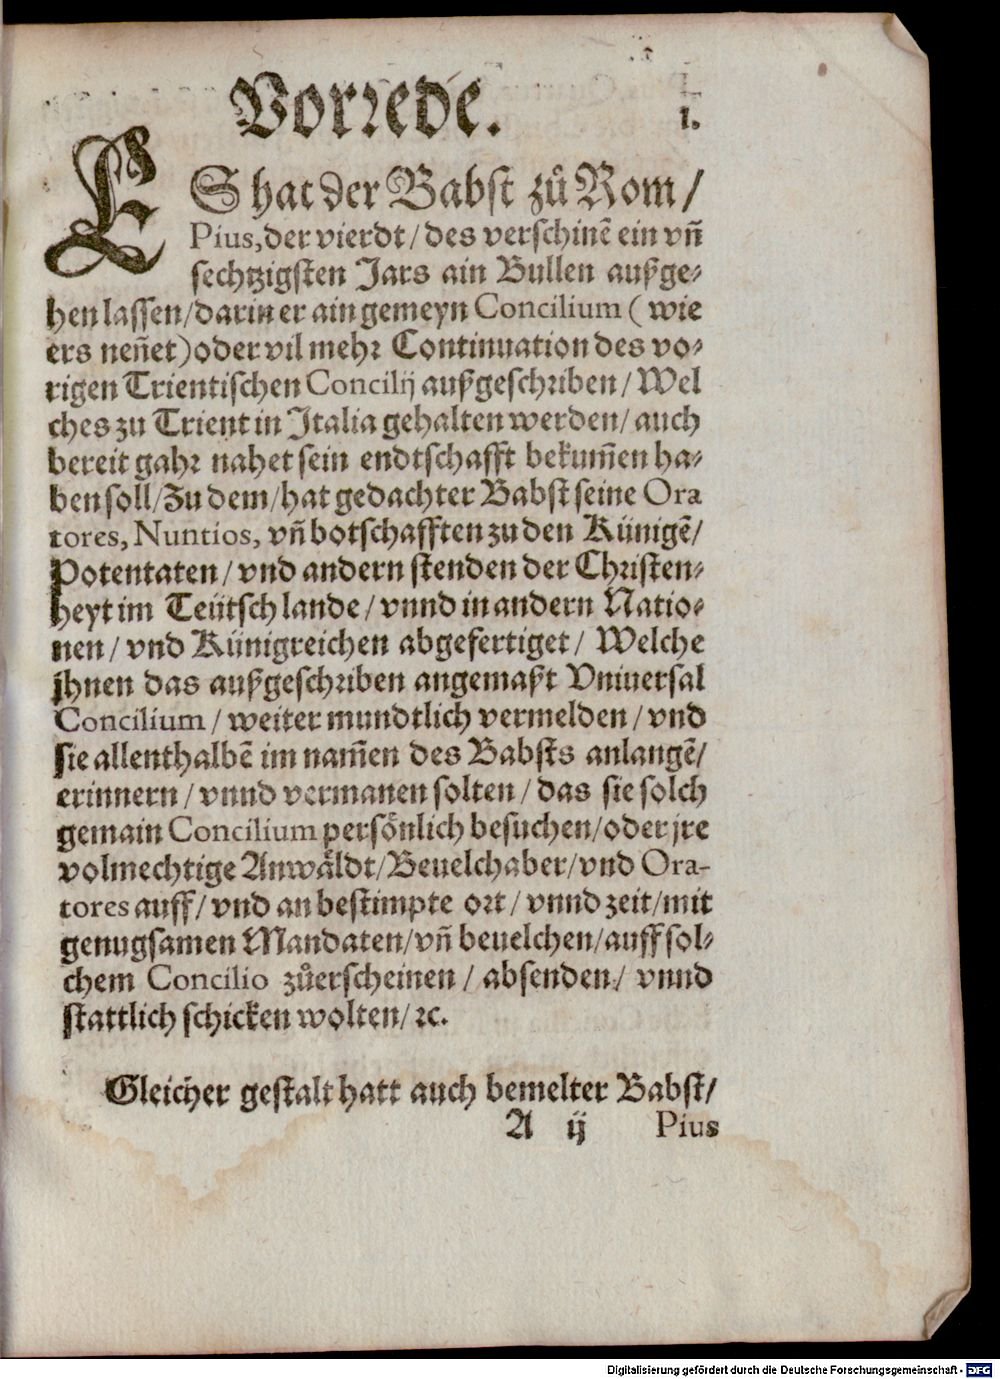 Vorrede.
1.
ES hat der Babst zů Rom/
Pius, der vierdt/ des verschinẽ ein vñ
sechtzigsten Jars ain Bullen außge-
hen lassen/ darin er ain gemeyn Concilium (wie
ers neñet) oder vil mehr Continuation des vo-
rigen Trientischen Concilij außgeschriben/ Wel
ches zu Trient in Italia gehalten werden/ auch
bereit gahr nahet sein endtschafft bekum̃en ha-
ben soll/ Zu dem/ hat gedachter Babst seine Ora
tores, Nuntios, vñ botschafften zu den Künigẽ/
Potentaten/ vnd andern stenden der Christen-
heyt im Teütsch lande/ vnnd in andern Natio-
nen/ vnd Künigreichen abgefertiget/ Welche
jhnen das außgeschriben angemaßt Vniuersal
Concilium/ weiter mundtlich vermelden/ vnd
sie allenthalbẽ im nam̃en des Babsts anlangẽ/
erinnern/ vnnd vermanen solten/ das sie solch
gemain Concilium persönlich besuchen/ oder jre
volmechtige Anwäldt/ Beuelchaber/ vnd Ora-
tores auff/ vnd an bestimpte ort/ vnnd zeit/ mit
genugsamen Mandaten/ vñ beuelchen/ auff sol-
chem Concilio zůerscheinen/ absenden/ vnnd
stattlich schicken wolten/ ꝛc.
Gleicher gestalt hatt auch bemelter Babst/
A ij Pius
Digitalisierung gefördert durch die Deutsche Forschungsgemeinschaft - DFG